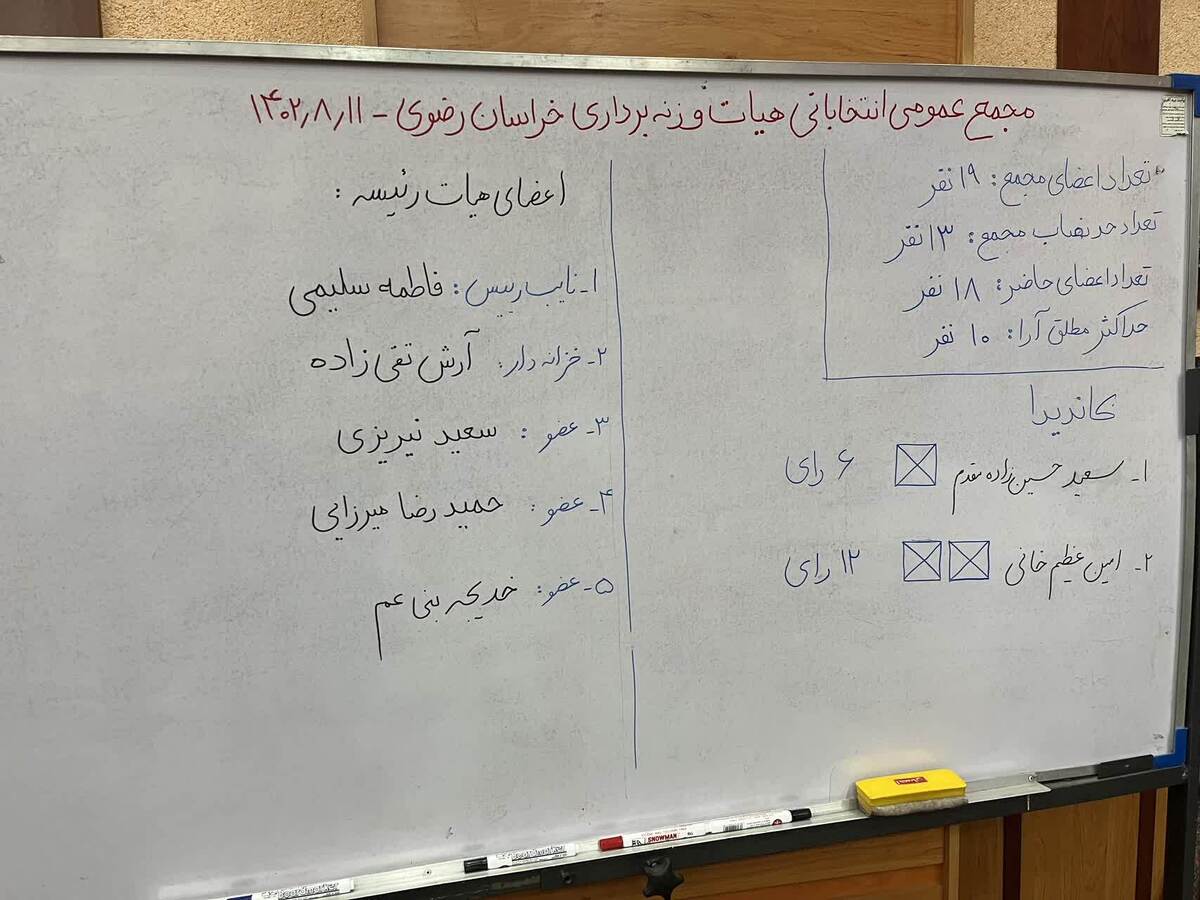 مجمع عمومی انتخاباتی هیات وزنه برداری خراسان رضوی - ۱۴۰۲٫۸٫۱۱
تعداد اعضای مجمع: ۱۹ نفر
تعداد حد نصاب مجمع: ۱۳ نفر
تعداد اعضای حاضر: ۱۸ نفر
حداکثر مطلق آرا: ۱۰ نفر
کاندیدا
۱- سعید حسین زاده مقدم ۶ رای
۲- امین عظیم خانی ۱۲ رای
اعضای هیات رئیسه:
۱- نایب رییس: فاطمه سلیمی
۲- خزانه دار: آرش تقی زاده
۳- عضو: سعید نیریزی
۴- عضو: حمید رضا میرزایی
۵- عضو: خدیجه بنی عم
SNOWMAN